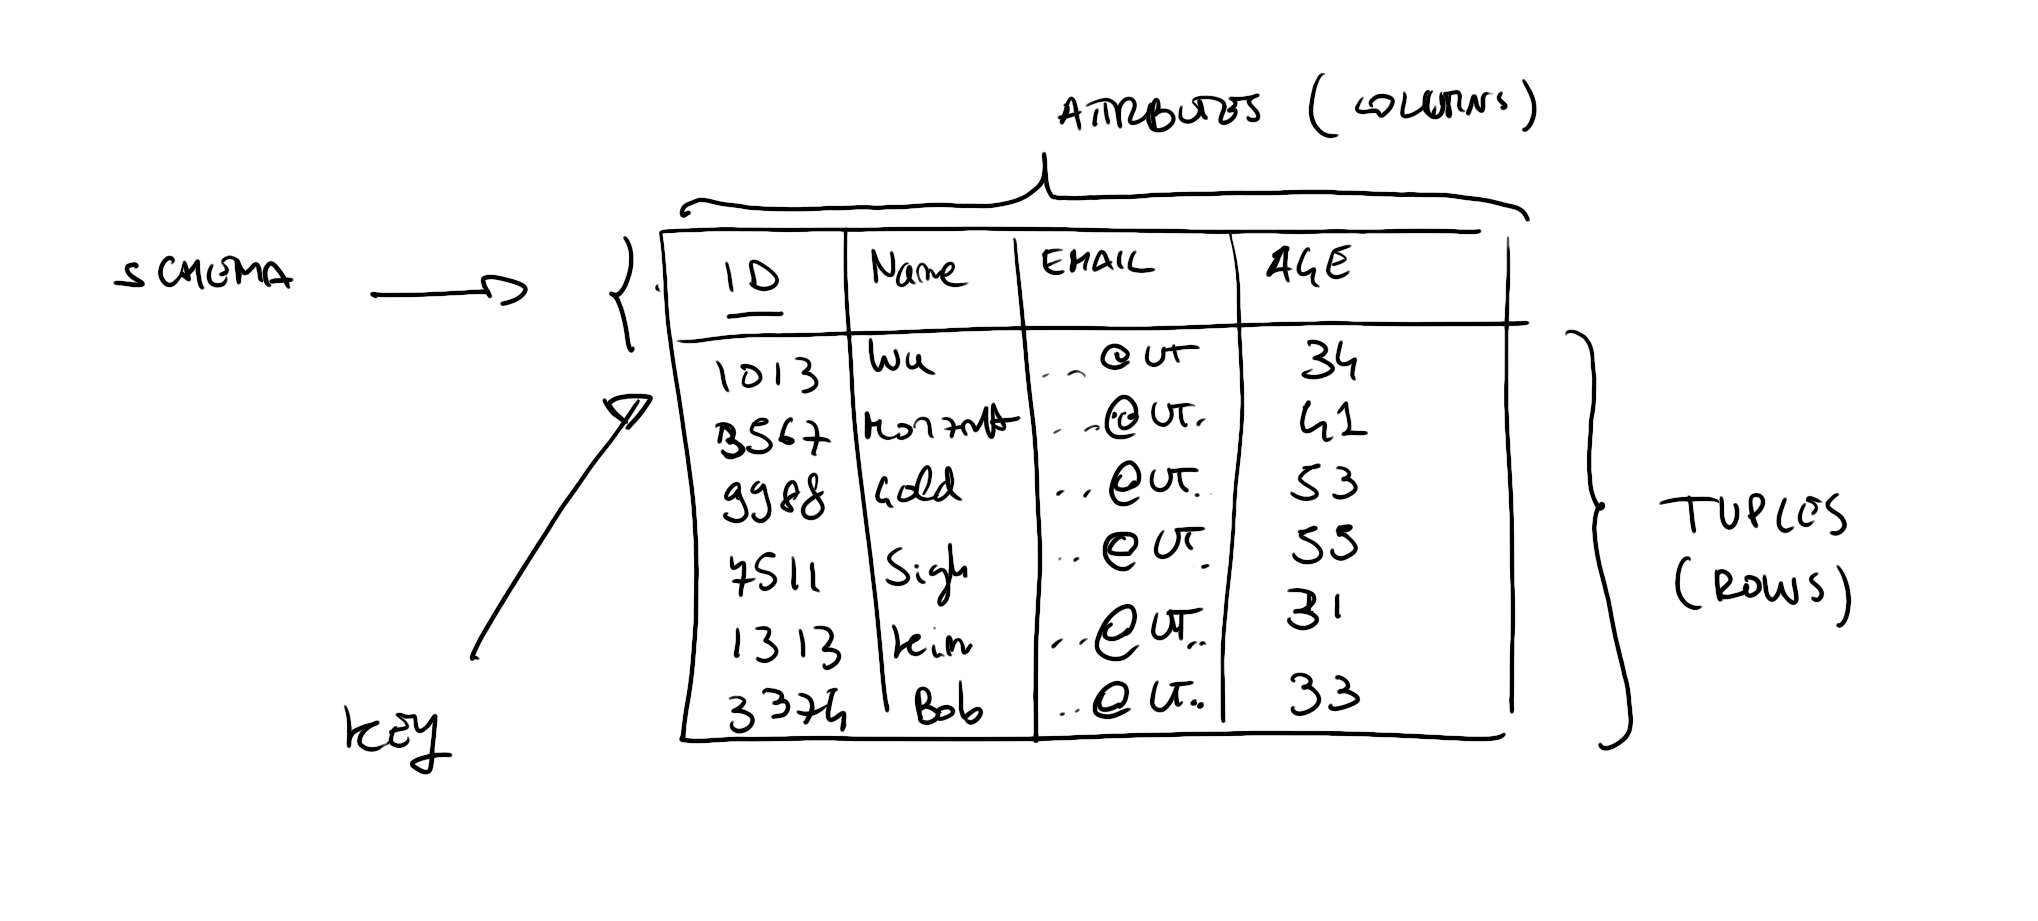 ATTRIBUTES (COLUMNS)
SCHEMA
ID Name EMAIL AGE
1013 Wu .. @UT 34
3567 ..@UT. 41
9988 Gold ..@UT. 53
7511 Sigh ..@UT. 55
1313 Kim ..@UT.. 31
3374 Bob ..@UT.. 33
TUPLES
(ROWS)
KEY